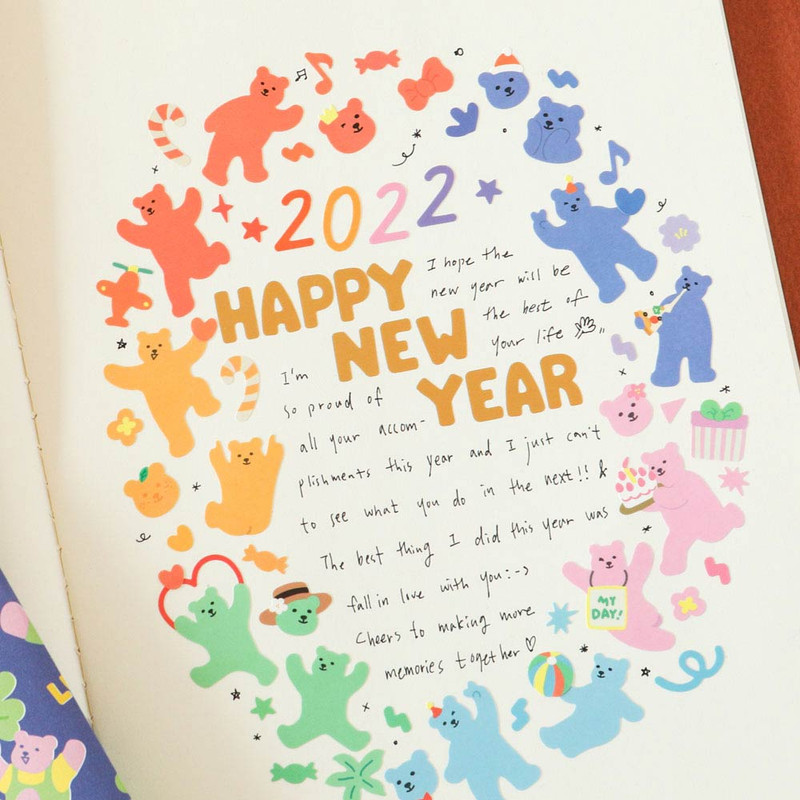 2022
HAPPY
NEW
YEAR
I hope the
new year will be
the best of
your life
I'm
so proud of
all your accom-
plishments this year and I just can't
to see what you do in the next!! &
The best thing I did this year was
fall in love with you:->
Cheers to making more
memories together♡
MY
DAY!